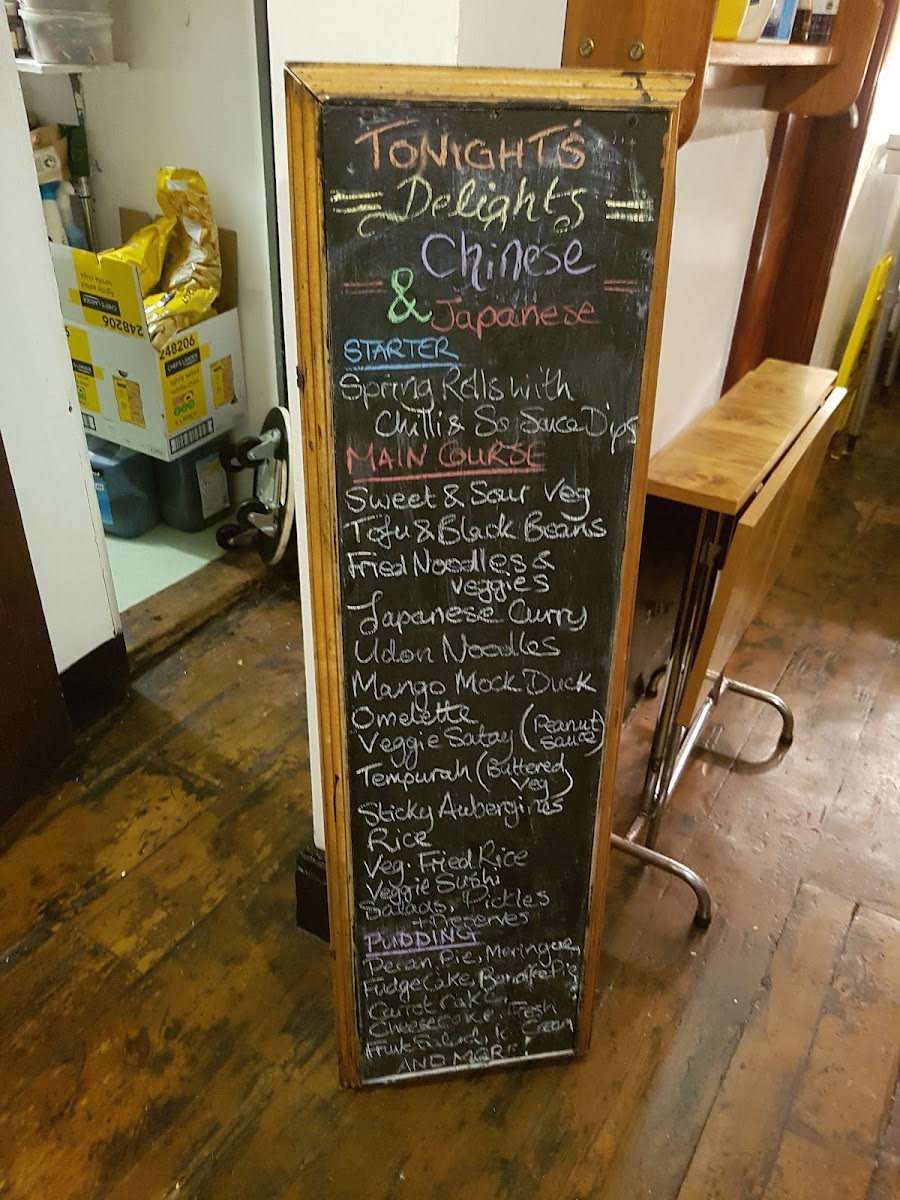 TONIGHTS
Delights
Chinese
& Japanese
STARTER
Spring Rolls with
Chilli & So Sauce Dips
MAIN COURSE
Sweet & Sour Veg
Tofu & Black Beans
Fried Noodles &
veggies
Japanese Curry
Udon Noodles
Mango Mock Duck
Omelette
Veggie Satay (Peanut
Sauce)
Tempurah (Battered
Veg)
Sticky Aubergines
Rice
Veg. Fried Rice
Veggie Sushi
Salads, Pickles
+ Preserves
PUDDING
Pecan Pie, Meringue,
Fudge Cake, Banoffee Pie
Carrot Cake,
Cheesecake, Fresh
Fruit Salad, Ice Cream
AND MORE!
248206
248206
CHEF'S LARDER
lightly salted
tortilla chips